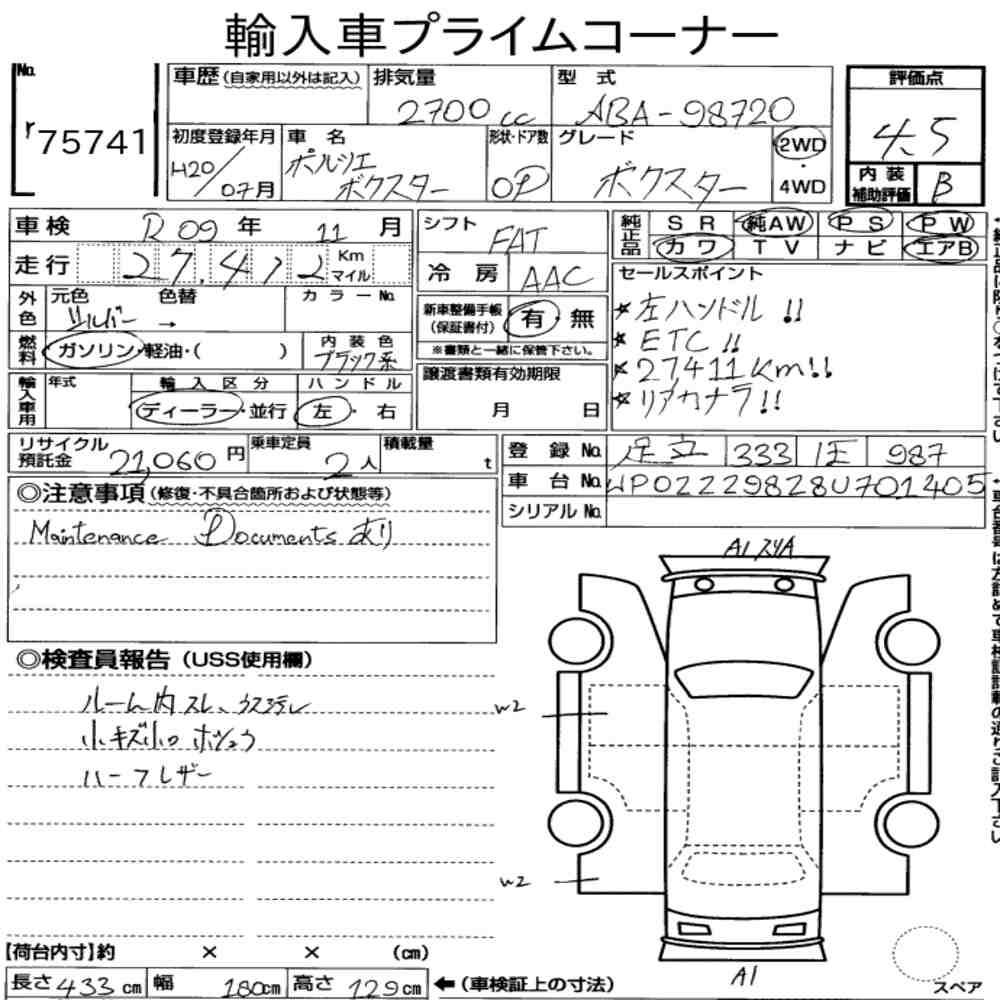 輸入車プライムコーナー
No.
r75741
車歴(自家用以外は記入)
排気量
2700cc
型 式
ABA-98720
評価点
4.5
内装補助評価
B
初度登録年月
H20/07月
車 名
ポルシェ
ボクスター
形状・ドア数
OP
グレード
ボクスター
2WD
・
4WD
車検 R09年 11月
走行 27,412 Km マイル
シフト FAT
冷 房 AAC
純正品
SR 純AW PS PW
カワ TV ナビ エアB
外色
元色 色替 カラーNo.
シルバー →
燃料
ガソリン・軽油・( )
内装色
ブラック系
新車整備手帳
(保証書付)
有・無
※書類と一緒に保管下さい。
セールスポイント
★左ハンドル!!
★ETC!!
★27411Km!!
★リアカナラ!!
輸入車用
年式
輸入区分
ディーラー・並行
ハンドル
左・右
譲渡書類有効期限
月 日
リサイクル預託金 21,060円
乗車定員 2人
積載量 t
登録No. 足立 333 987
車台No. WP0ZZZ98Z8U701405
シリアルNo.
◎注意事項(修復・不具合箇所および状態等)
Maintenance Documentsあり
◎検査員報告(USS使用欄)
ルーム内スレ、ウス汚レ
小キズ小ロ ホシュウ
ハーフレザー
A1 スリA
W2
W2
A1
スペア
【荷台内寸】約 × × (cm)
長さ433cm 幅 180cm 高さ129cm ←(車検証上の寸法)